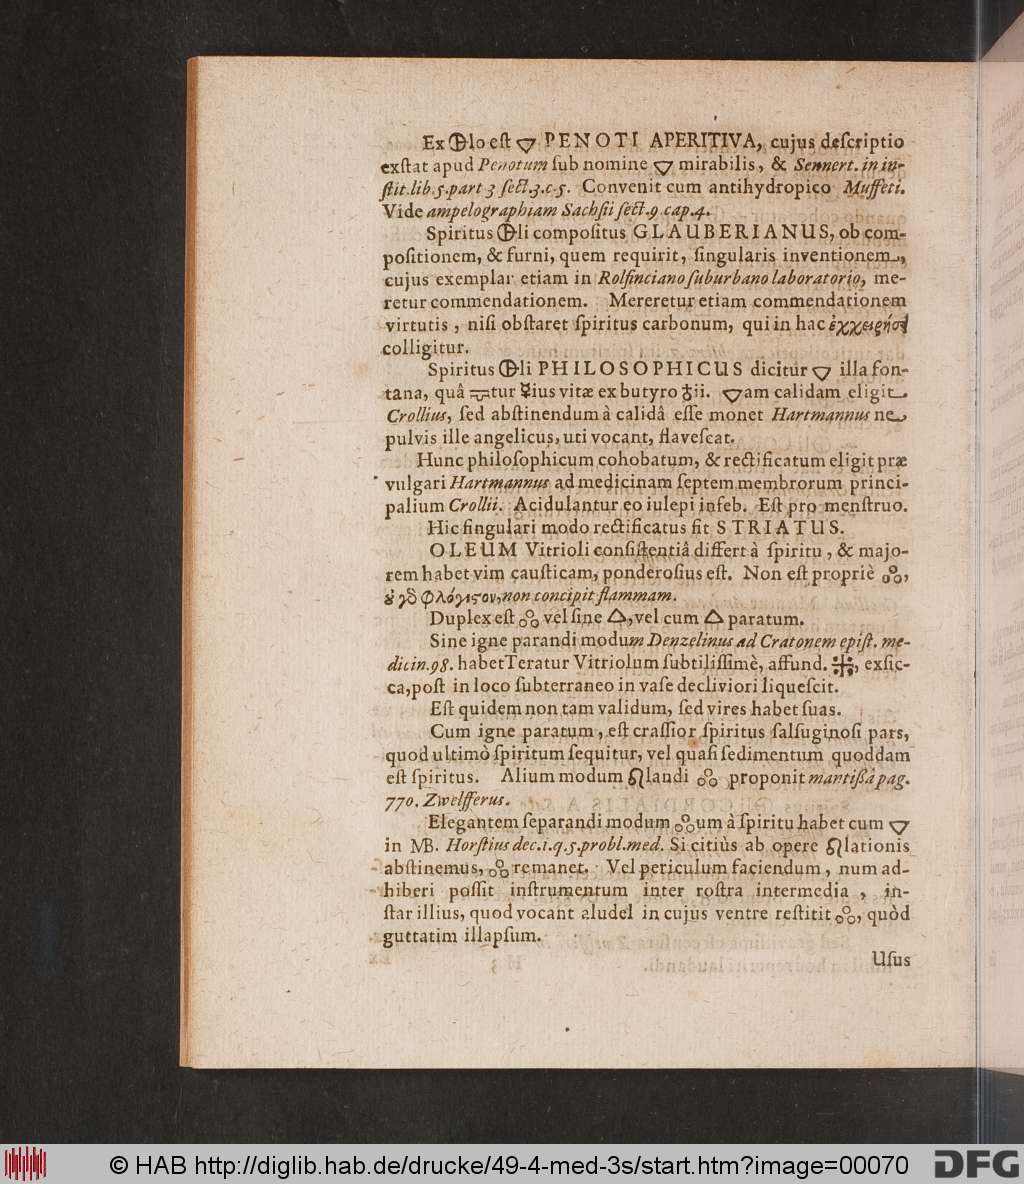 Ex 🜖lo eſt 🜄 PENOTI APERITIVA, cujus deſcriptio
exſtat apud Penotum ſub nomine 🜄 mirabilis, & Sennert. in in-
ſtit. lib. 5. part 3 ſect. 3. c. 5. Convenit cum antihydropico Muffeti.
Vide ampelographiam Sachſii ſect. 9 cap. 4.
Spiritus 🜖li compoſitus GLAUBERIANUS, ob com-
poſitionem, & furni, quem requirit, ſingularis inventionem,
cujus exemplar etiam in Rolfinciano ſuburbano laboratorio, me-
retur commendationem. Mereretur etiam commendationem
virtutis, niſi obſtaret ſpiritus carbonum, qui in hac
colligitur.
Spiritus 🜖li PHILOSOPHICUS dicitur 🜄 illa fon-
tana, quâ tur ☿ius vitæ ex butyro ♁ii. 🜄am calidam eligit
Crollius, ſed abſtinendum à calidâ eſſe monet Hartmannus ne
pulvis ille angelicus, uti vocant, flaveſcat.
Hunc philoſophicum cohobatum, & rectificatum eligit præ
vulgari Hartmannus ad medicinam ſeptem membrorum princi-
palium Crollii. Acidulantur eo iulepi in feb. Eſt pro menſtruo.
Hic ſingulari modo rectificatus fit STRIATUS.
OLEUM Vitrioli conſiſtentiâ differt à ſpiritu, & majo-
rem habet vim cauſticam, ponderoſius eſt. Non eſt propriè ஃ,
ȣ̓ γδ φλόγιϛον, non concipit flammam.
Duplex eſt ஃ vel ſine 🜂, vel cum 🜂 paratum.
Sine igne parandi modum Denzelinus ad Cratonem epiſt. me-
dicin. 98. habet Teratur Vitriolum ſubtiliſſimè, affund. 🜊, exſic-
ca, poſt in loco ſubterraneo in vaſe decliviori liqueſcit.
Eſt quidem non tam validum, ſed vires habet ſuas.
Cum igne paratum, eſt craſſior ſpiritus ſalſuginoſi pars,
quod ultimò ſpiritum ſequitur, vel quaſi ſedimentum quoddam
eſt ſpiritus. Alium modum landi ஃ proponit mantiſſâ pag.
770. Zwelfferus.
Elegantem ſeparandi modum ஃum à ſpiritu habet cum 🜄
in MB. Horſtius dec. 1. q. 5. probl. med. Si citiùs ab opere lationis
abſtinemus, ஃ remanet. Vel periculum faciendum, num ad-
hiberi poſſit inſtrumentum inter roſtra intermedia, in-
ſtar illius, quod vocant aludel in cujus ventre reſtitit ஃ, quòd
guttatim illapſum.
Uſus
© HAB http://diglib.hab.de/drucke/49-4-med-3s/start.htm?image=00070
DFG